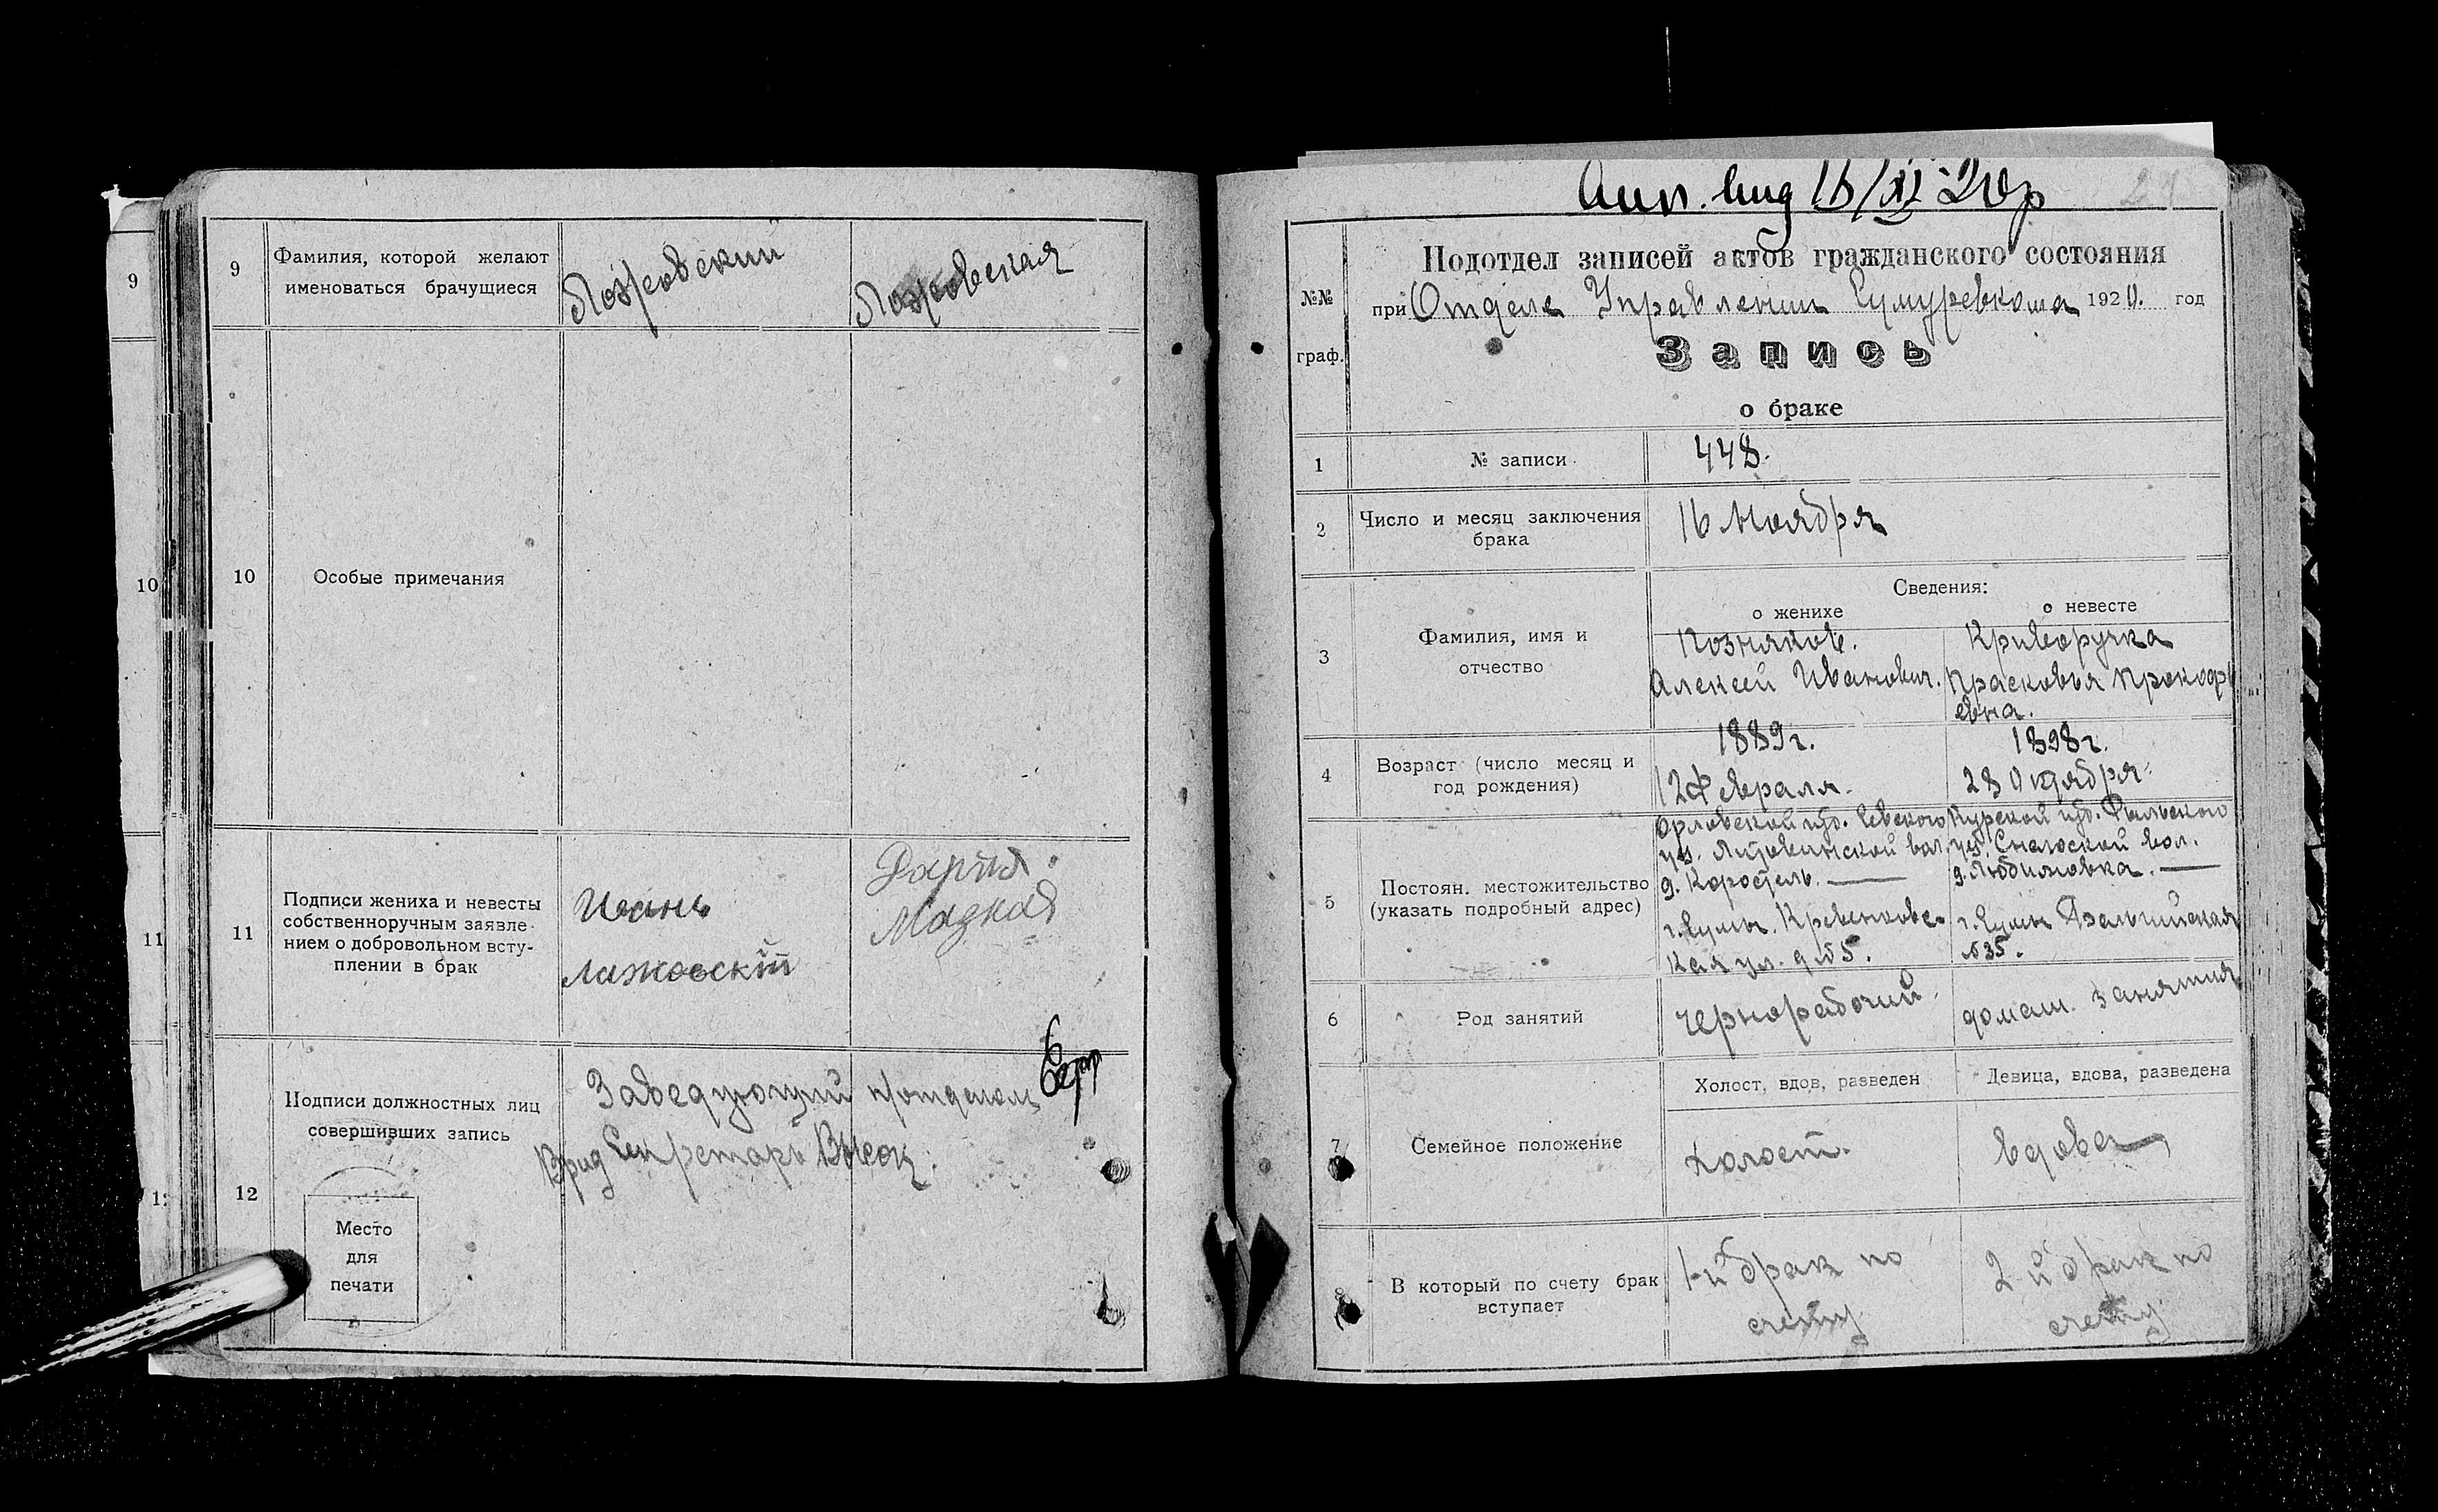 9
10
11
9
Фамилия, которой желают
именоваться брачущиеся
Ложовский
Ложовская
10
Особые примечания
11
Подписи жениха и невесты
собственноручным заявле-
нием о добровольном всту-
плении в брак
Иванъ
Лажовскій
Дарія
Мадкая
12
Подписи должностных лиц
совершивших запись
Заведующий п/отделом
Врид Секретарь
Место
для
печати
№№
граф.
Подотдел записей актов гражданского состояния
при Отделе Управления Сумуревкома 1920. год
Запись
о браке
1
№ записи
448.
2
Число и месяц заключения
брака
16 Ноября
3
Фамилия, имя и
отчество
Сведения:
о женихе
о невесте
Позняков.
Алексей Иванович.
Криворучка
Прасковья Прокофь
евна.
4
Возраст (число месяц и
год рождения)
1889 г.
12 Февраля.
1898 г.
28 Октября.
5
Постоян. местожительство
(указать подробный адрес)
Орловской губ. Севского
уез. вол.
д. Коростель.
г. Сумы.
кая ул. д № 5.
Курской губ. Рыльского
уез. Снагоской вол.
д. Любимовка.
г. Сумы Бельгийская
№ 35.
6
Род занятий
чернорабочий
домаш. занятия
7
Семейное положение
Холост, вдов, разведен
Девица, вдова, разведена
холост.
вдова
8
В который по счету брак
вступает
1-й брак по
счету
2-й брак по
счету